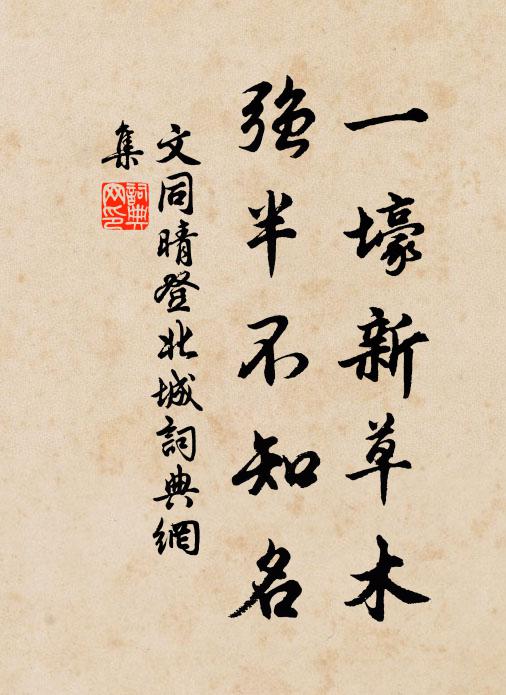 一壕新草木
强半不知名
文同晴登北城詞典網
集
詞典
网印